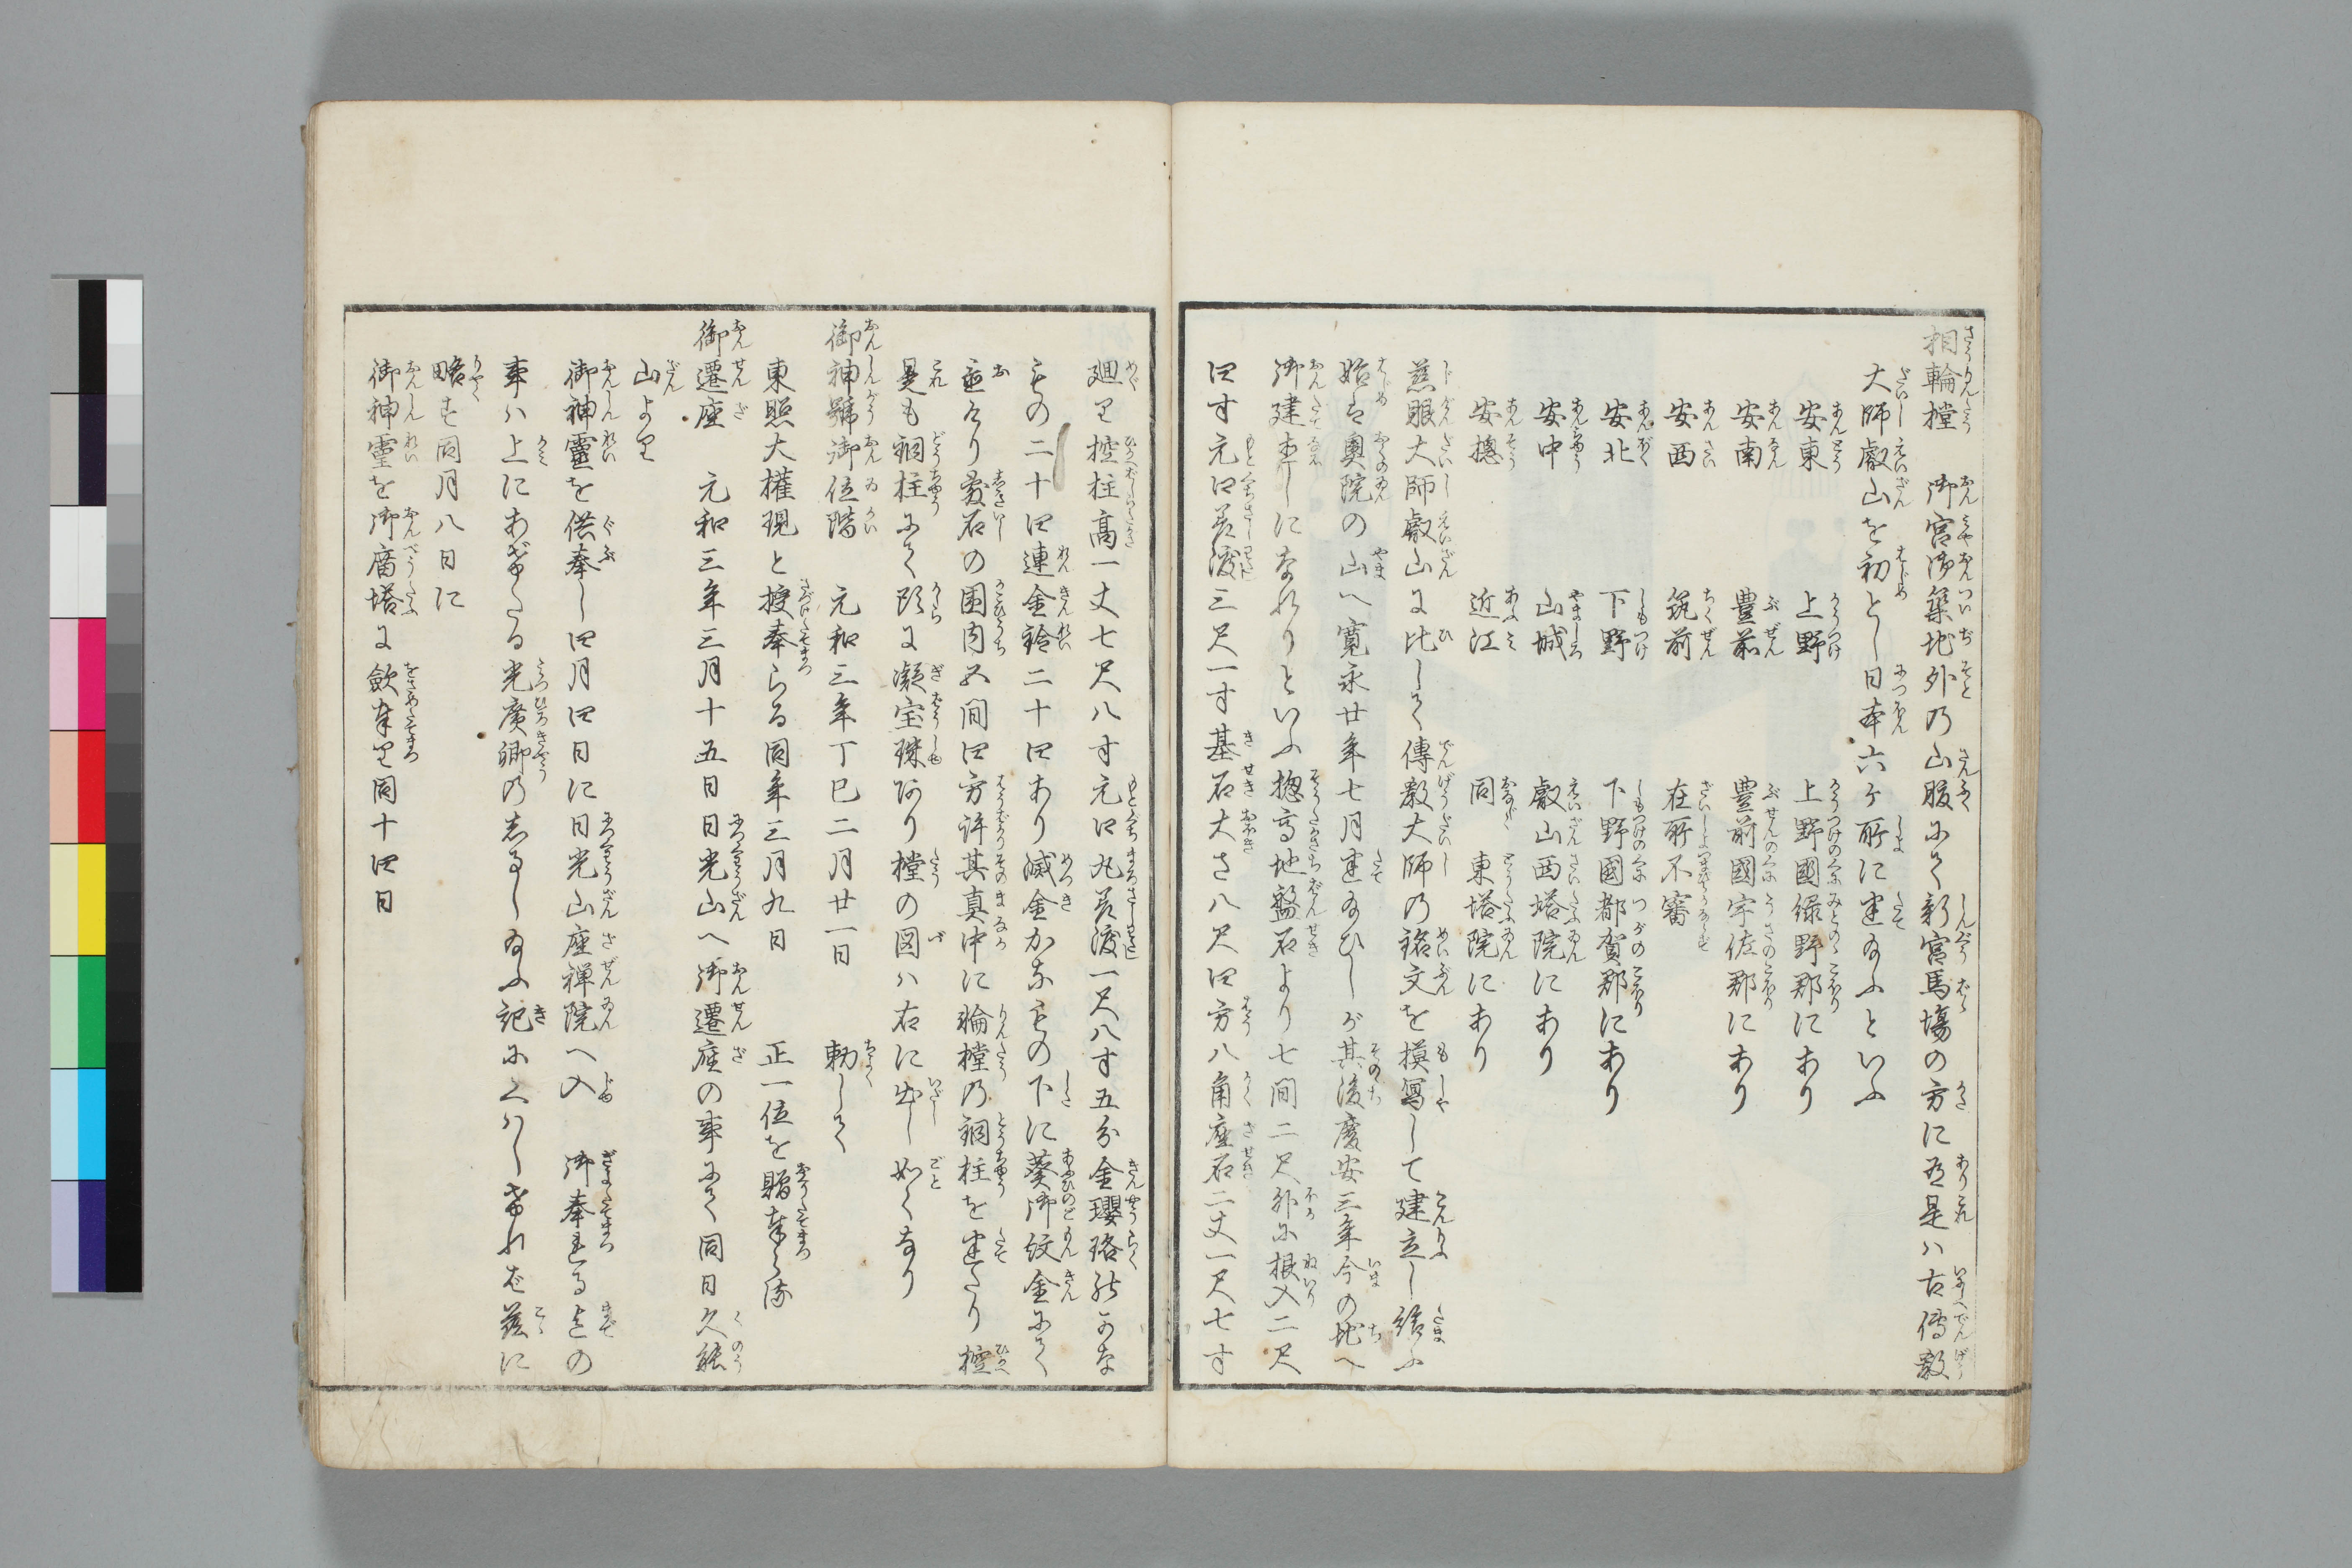 相輪橖　御宮御築地外の山腹にて新宮馬場の方に有是ハ古傳教
大師叡山を初とし日本六ケ所に建給ふといふ
安東　上野　上野國緑野郡にあり
安南　豊前　豊前國宇佐郡にあり
安西　筑前　在所不審
安北　下野　下野國都賀郡にあり
安中　山城　叡山西塔院にあり
安總　近江　同　東塔院にあり
慈眼大師叡山に比して傳教大師の銘文を摸寫して建立し給ふ
始は奥院の山へ寛永廿年七月建給ひしが其後慶安三年今の地へ
御建直しになれりといふ惣高地盤石より七間二尺外に根入二尺
四寸元口差渡三尺一寸基石大さ八尺四方八角座石二丈一尺七寸
廻り控柱高一丈七尺八寸元口丸差渡一尺八寸五分金瓔珞かな
もの二十四連金鈴二十四あり滅金かなものゝ下に葵御紋金にて
並石の囲内五間四方許其真中に輪橖の銅柱を建たり控
是も銅柱にて頭に凝宝珠あり橖の図ハ右に出し如くなり
御神號御位階　元和三年丁巳二月廿一日　勅して
東照大權現と授奉らる同年三月九日　正一位を贈奉らる
御遷座　元和三年三月十五日日光山へ御遷座の事にて同日久能
山より
御神靈を供奉し四月四日に日光山座禅院へ入　御奉るまでの
事ハ上にあげたる光廣卿のしるし給ふ記にくハしけれバ茲に
略す同月八日に
御神霊を御廟塔に斂奉り同十四日